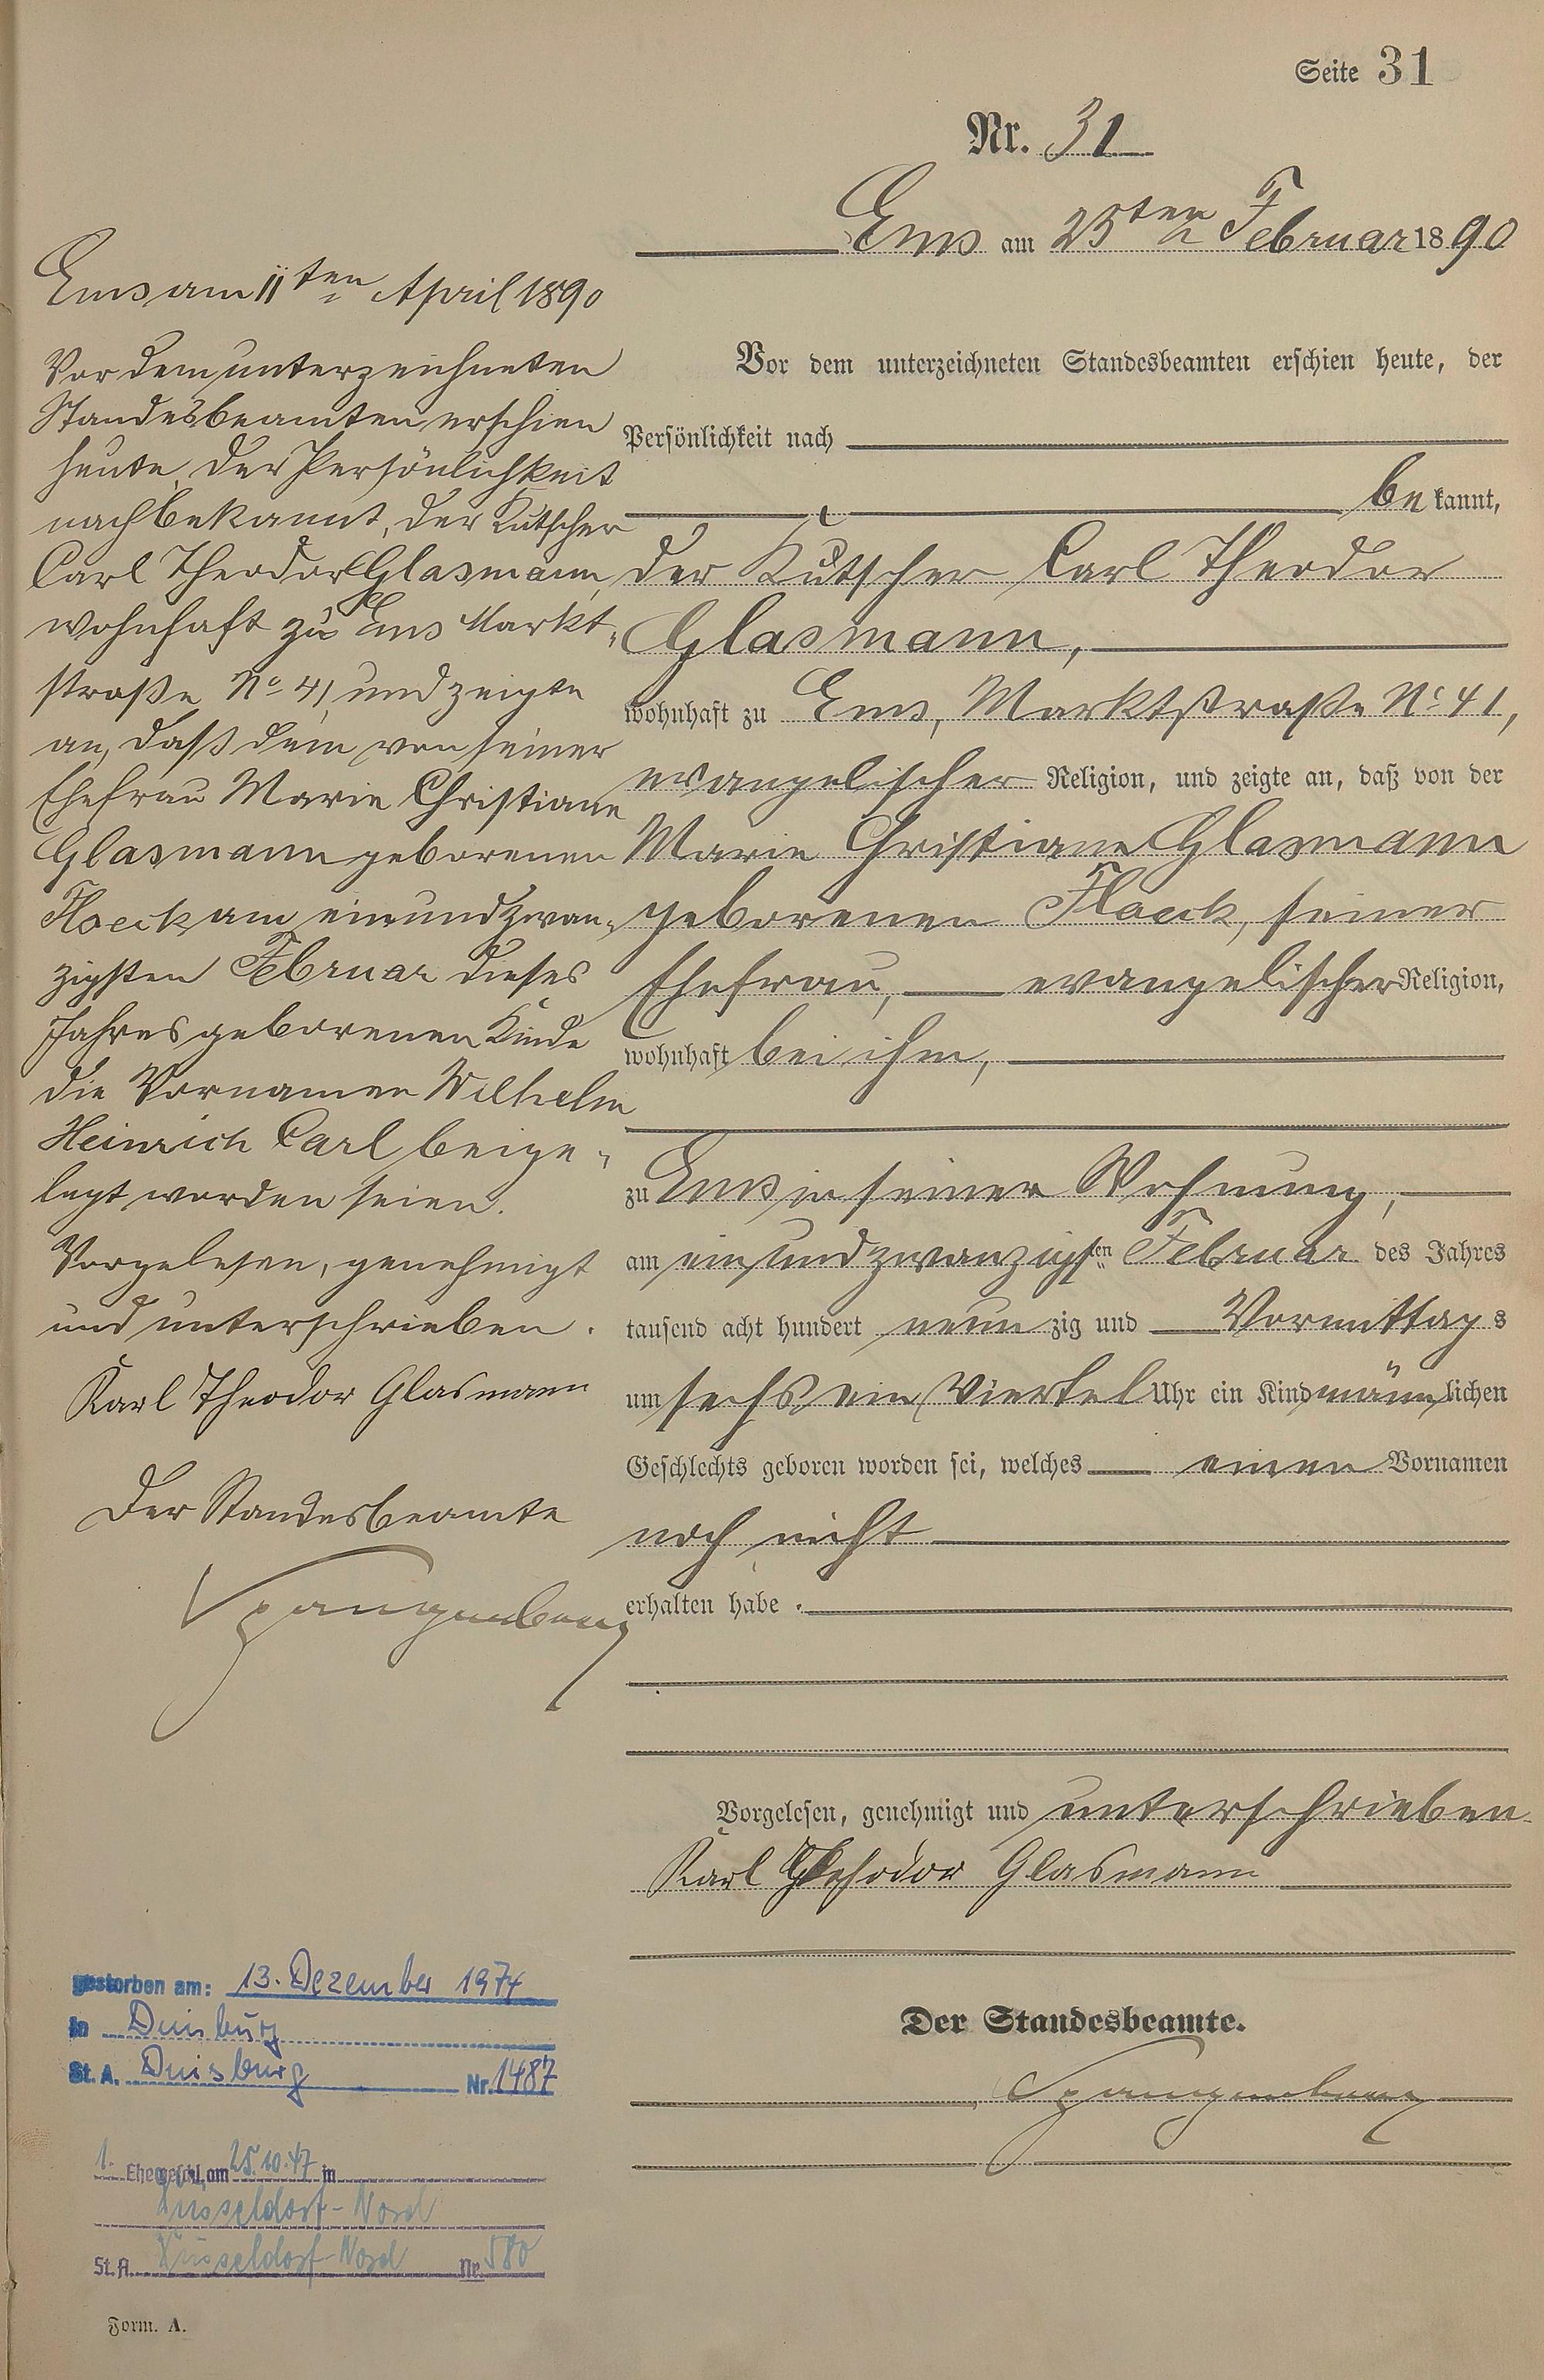 Seite 31
Nr. 31
Ems am 25ten Februar 1890
Vor dem unterzeichneten Standesbeamten erschien heute, der
Persönlichkeit nach
bekannt,
der Kutscher Carl Theodor
Glasmann,
wohnhaft zu Ems, Marktstraße No 41,
evangelischer Religion, und zeigte an, daß von der
Marie Christiane Glasmann
geborenen Floeck, seiner
Ehefrau, evangelischer Religion,
wohnhaft bei ihm,
zu Ems in seiner Wohnung,
am einundzwanzigsten Februar des Jahres
tausend acht hundert neunzig und Vormittags
um sechs ein Viertel Uhr ein Kind männlichen
Geschlechts geboren worden sei, welches einen Vornamen
noch nicht
erhalten habe.
Vorgelesen, genehmigt und unterschrieben.
Karl Theodor Glasmann
Der Standesbeamte.
Spangenberg
Ems am 11ten April 1890
Vor dem unterzeichneten
Standesbeamten erschien
heute, der Persönlichkeit
nach bekannt, der Kutscher
Carl Theodor Glasmann,
wohnhaft zu Ems Markt-
straße No 41, und zeigte
an, daß dem von seiner
Ehefrau Marie Christiane
Glasmann geborenen
Floeck am einundzwan-
zigsten Februar dieses
Jahres geborenen Kinde
die Vornamen Wilhelm
Heinrich Carl beige-
legt worden seien.
Vorgelesen, genehmigt
und unterschrieben.
Karl Theodor Glasmann
Der Standesbeamte
Spangenberg
gestorben am: 13. Dezember 1974
in Duisburg
St. A. Duisburg Nr. 1487
1. Eheschl. am 25.10.47 in
Düsseldorf-Nord
St. A. Düsseldorf-Nord Nr. 580
Form. A.